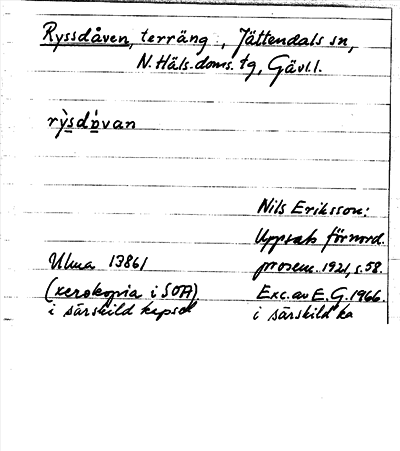 Ryssdåven, terräng, Jättendals sn,
N. Häls. doms. tg, Gävl.l.
rỳsdò̱van
Nils Eriksson:
Uppsats för nord.
Ulma 13861 prosem. 1921, s. 58.
(xerokopia i SOA) Exc. av E. G. 1966.
i särskild kapsel i särskild ka